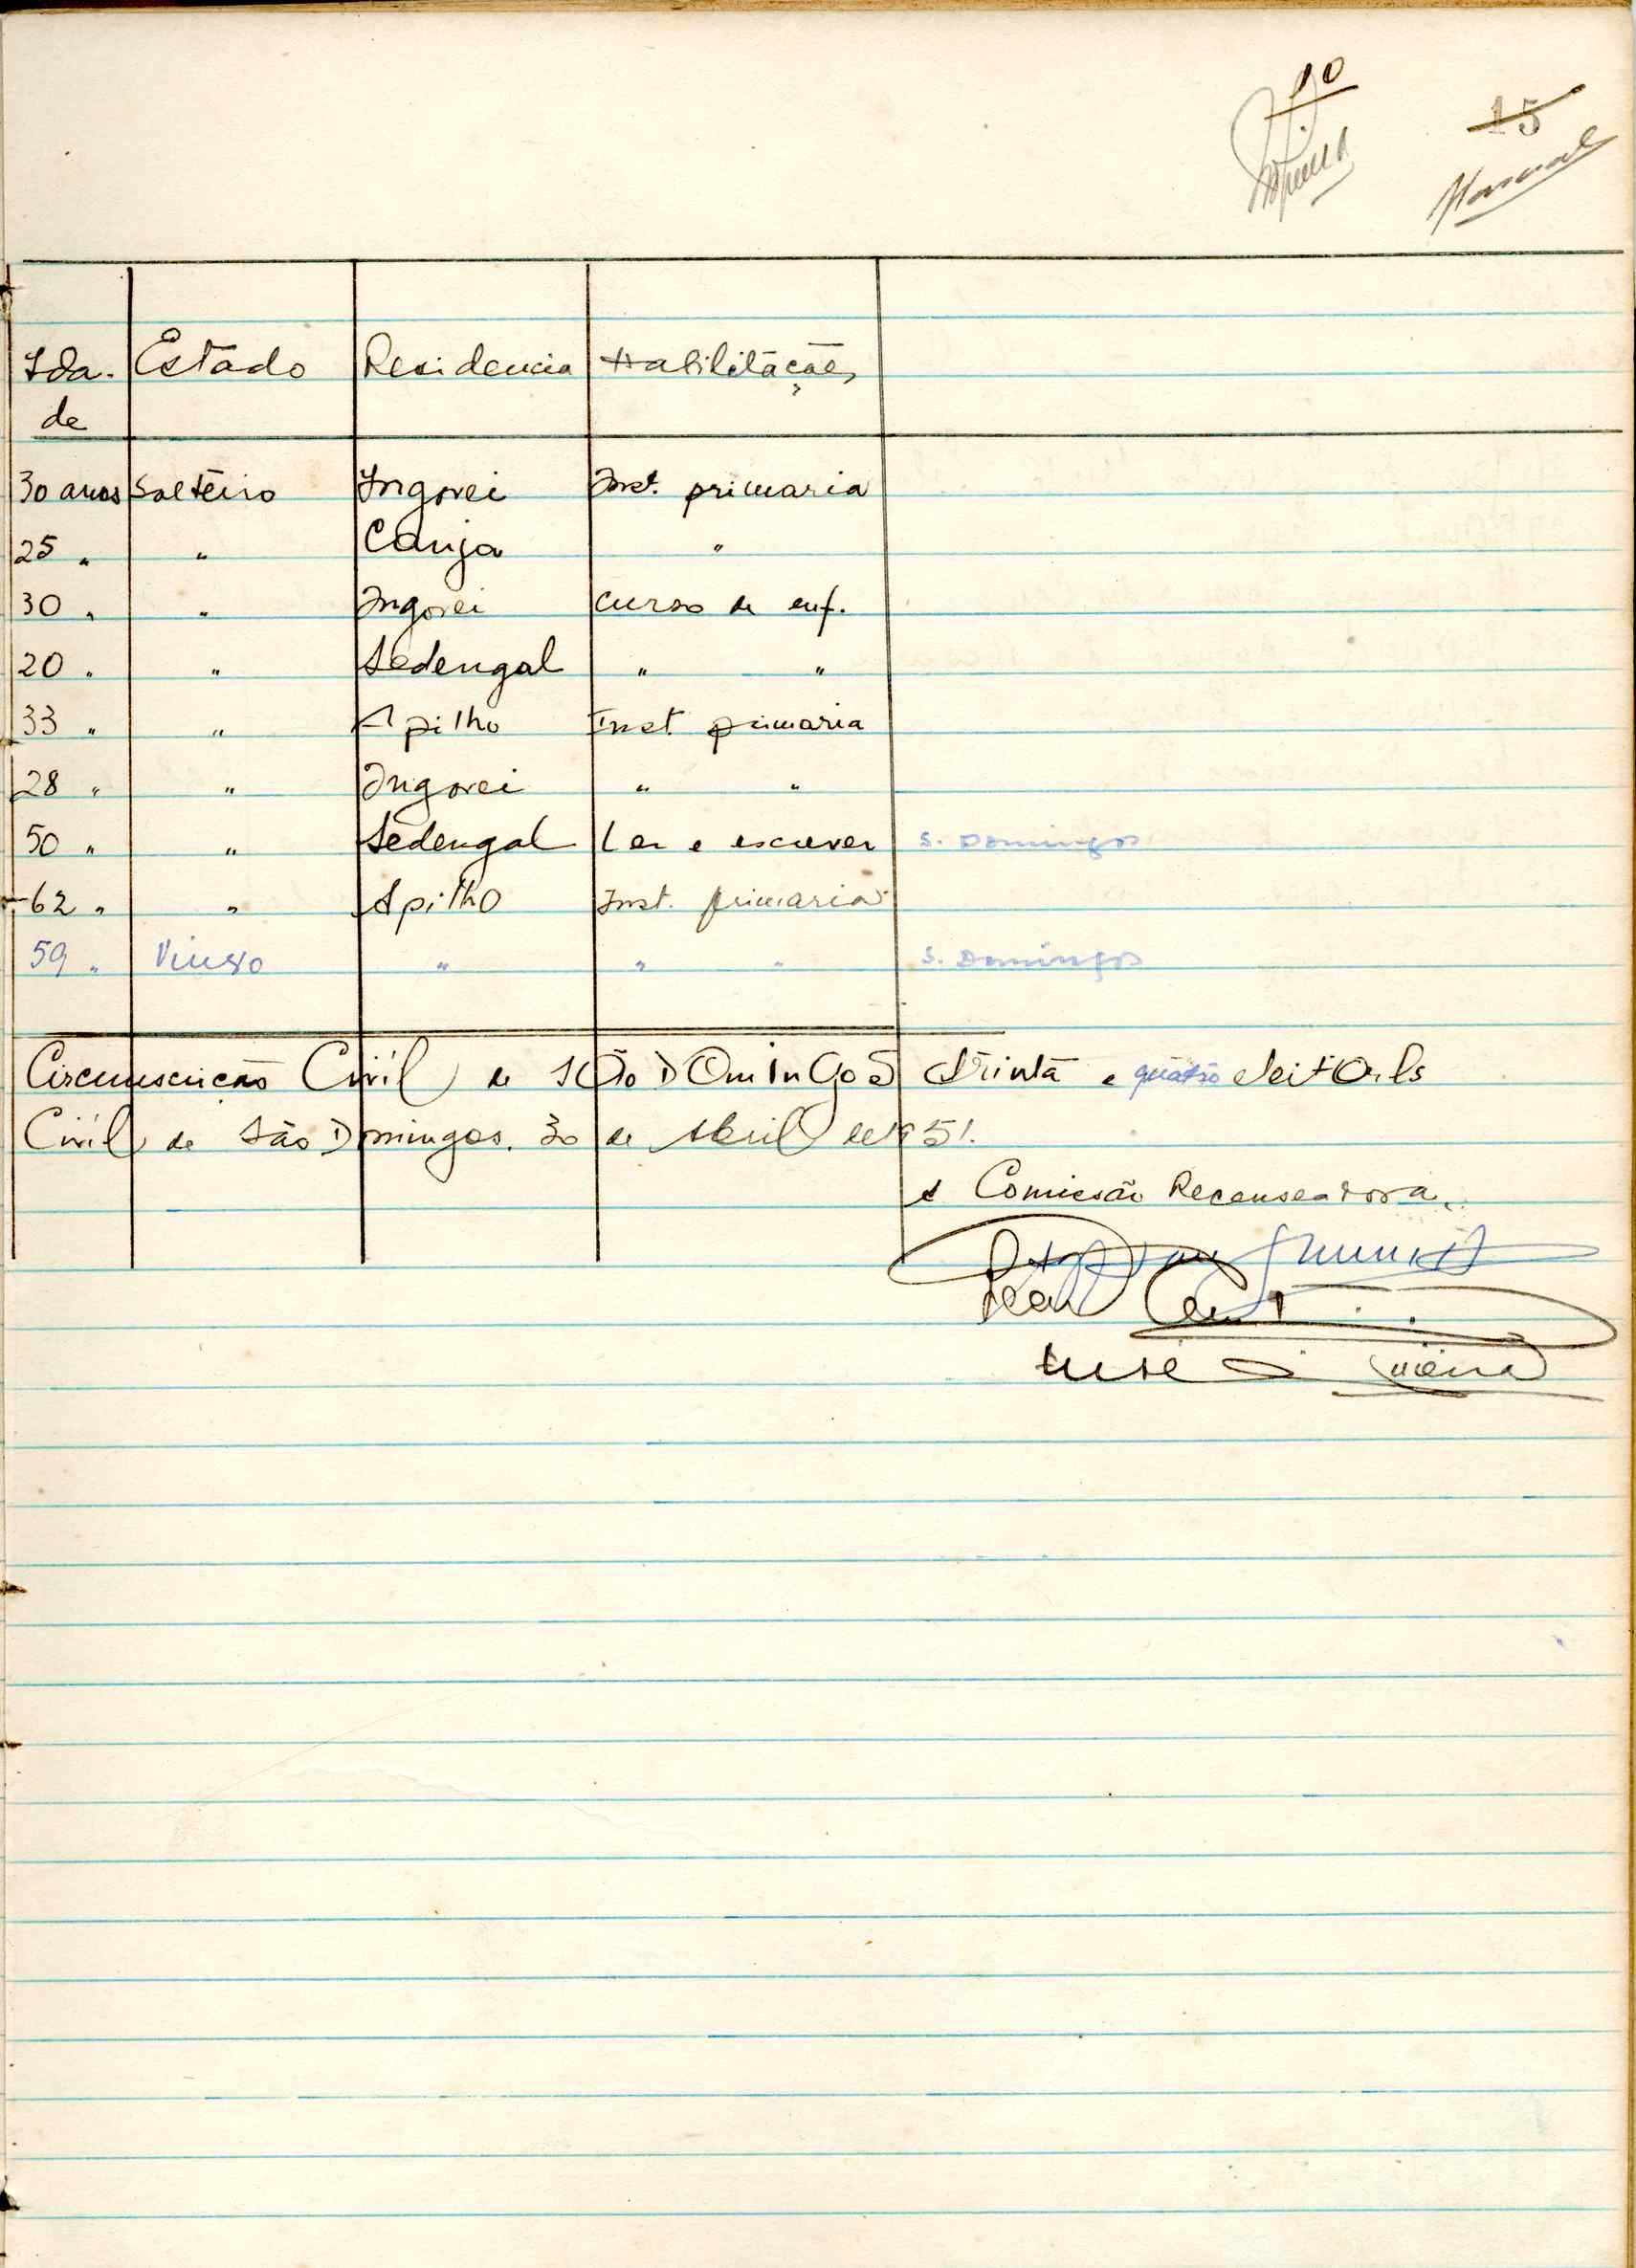 10
15
Idade Estado Residencia Habilitações
30 anos Solteiro Ingorei Inst. primaria
25 " " Canja "
30 " " Ingorei curso de enf.
20 " " Sedengal " "
33 " " Apilho Inst. primaria
28 " " Ingorei " "
50 " " Sedengal Ler e escrever S. Domingos
62 " " Apilho Inst. primaria
59 " Viuvo " " " S. Domingos
Circunscrição Civil de São Domingos trinta e quatro eleitores
Civil de São Domingos. 30 de Abril de 1951.
A Comissão Recenseadora,